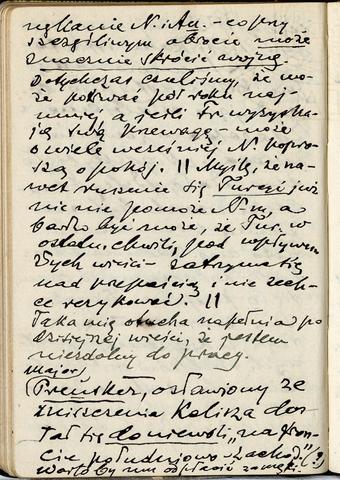 N. i Au. – co przy
szczęśliwym obrocie może
znacznie skrócić wojnę.
Dotychczas czuliśmy, że mo-
że potrwać pół roku naj-
mniej, a jeśli Fr. wyzyska-
ją swą przewagę – może
o wiele wcześniej N. popro-
szą o pokój. || Myślę, że na-
wet ruszenie się Turcji już
nic nie pomoże N-m, a
bardzo być może, że Tur. w
ostatn. chwili, pod wpływem
tych wieści – zatrzyma się
nad przepaścią i nie zech-
ce ryzykować. ||
Taka mię otucha napełnia po
dzisiejszej wieści, że jestem
niezdolny do pracy.
(Major)
Preusker, osławiony ze
zniszczenia Kalisza dos-
tał się do niewoli „na fron-
cie południowo-zachod." (?)
Warto by mu odpłacić